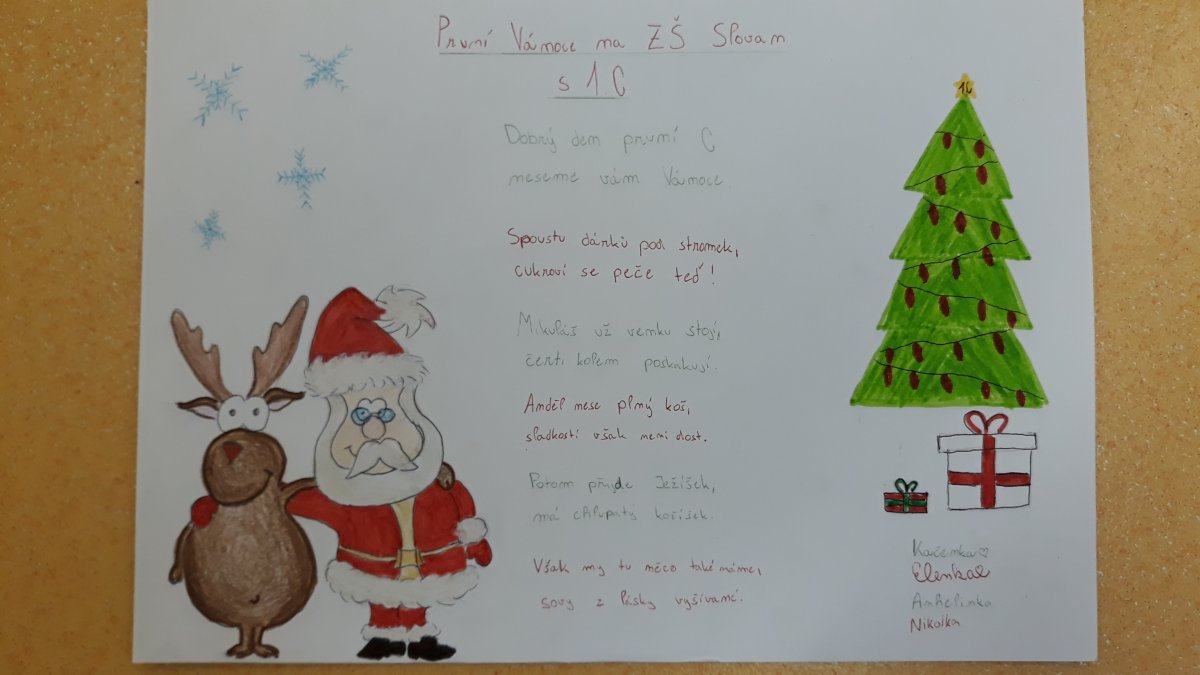 První Vánoce na ZŠ Slovan
s 1.C
1C
Dobrý den první C
neseme vám Vánoce.
Spoustu dárků pod stromek,
cukroví se peče teď!
Mikuláš už venku stojí,
čerti kolem poskakují.
Anděl nese plný koš,
sladkostí však není dost.
Potom přijde Ježíšek,
má chlupatý kožíšek.
Však my tu něco také máme,
sovy z lásky vyšívané.
Kačenka♡
Elenka
Anhelinka
Nikolka